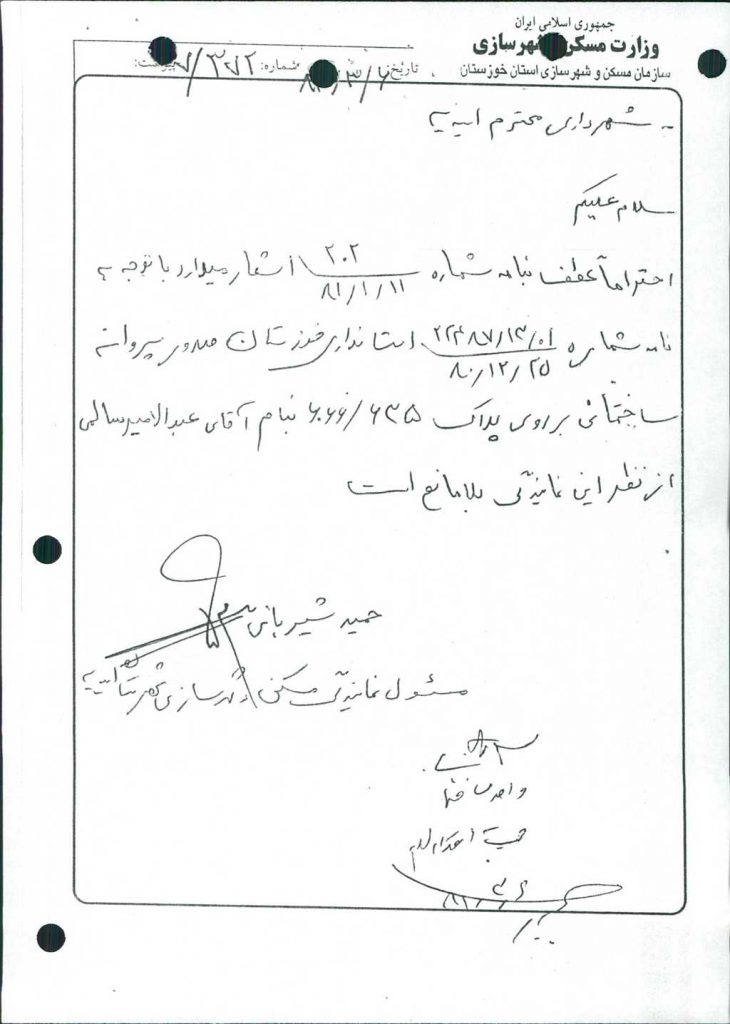 جمهوری اسلامی ایران
وزارت مسکن و شهرسازی
سازمان مسکن و شهرسازی استان خوزستان
تاریخ: ۸۱/۳/۶ شماره: ۳۷۲/ پیوست:
شهرداری محترم
سلام علیکم
احتراماً عطف بنامه شماره ۲۰۲ ۸۱/۱/۱۱ اشعار میدارد با توجه به
نامه شماره ۲۲۴۸۷/۱۳/۰۱ ۸۰/۱۲/۲۵ استانداری خوزستان صدور پروانه
ساختمانی بر روی پلاک ۶۰۶۶/۶۳۵ بنام آقای عبدالامیر سالمی
از نظر این نمایندگی بلامانع است
حمید شیربانی
مسئول نمایندگی مسکن و شهرسازی شهرستان
واحد
جهت اقدام لازم
۸۱/۳/۶